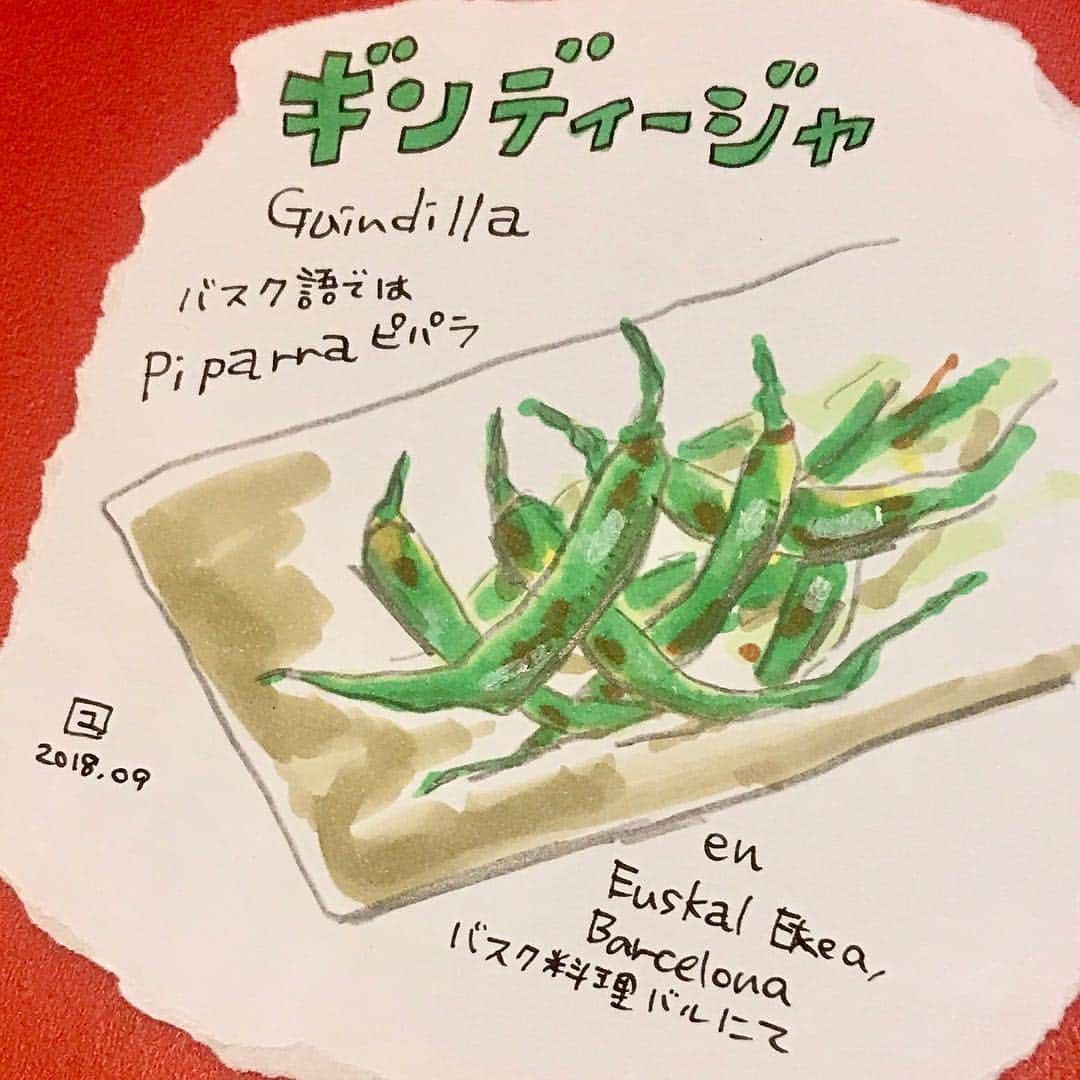 ギンディージャ
Guindilla
バスク語では
Piparra ピパラ
ユ
2018.09
en
Euskal Etxea,
Barcelona
バスク料理バルにて